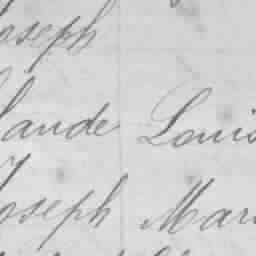 Joseph
laude Louis
Joseph Mari